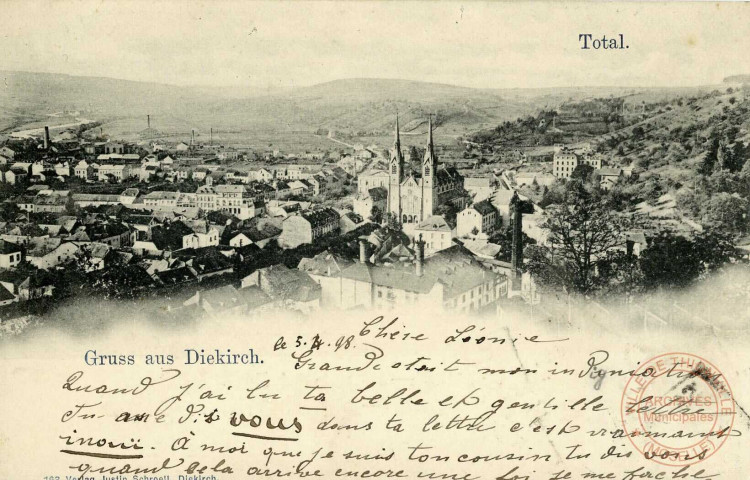 Total.
Gruss aus Diekirch.
le 5.4.98. Chère Léonie
Grande était mon indignation
Quand j'ai lu ta belle et gentille
Tu me dis vous dans ta lettre c'est vraiment
inouï. A moi que je suis ton cousin tu dis vous
quand cela arrive encore une foi je me fâche
163 Verlag Justin Schroell, Diekirch
VILLE DE THIONVILLE
ARCHIVES
Municipales